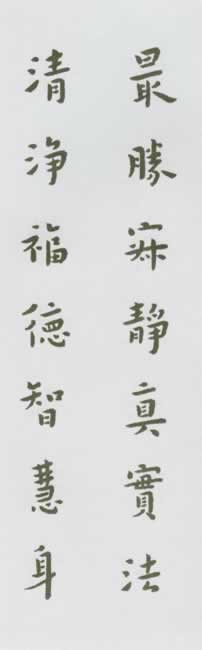 最勝寂静真實法
清浄福德智慧身